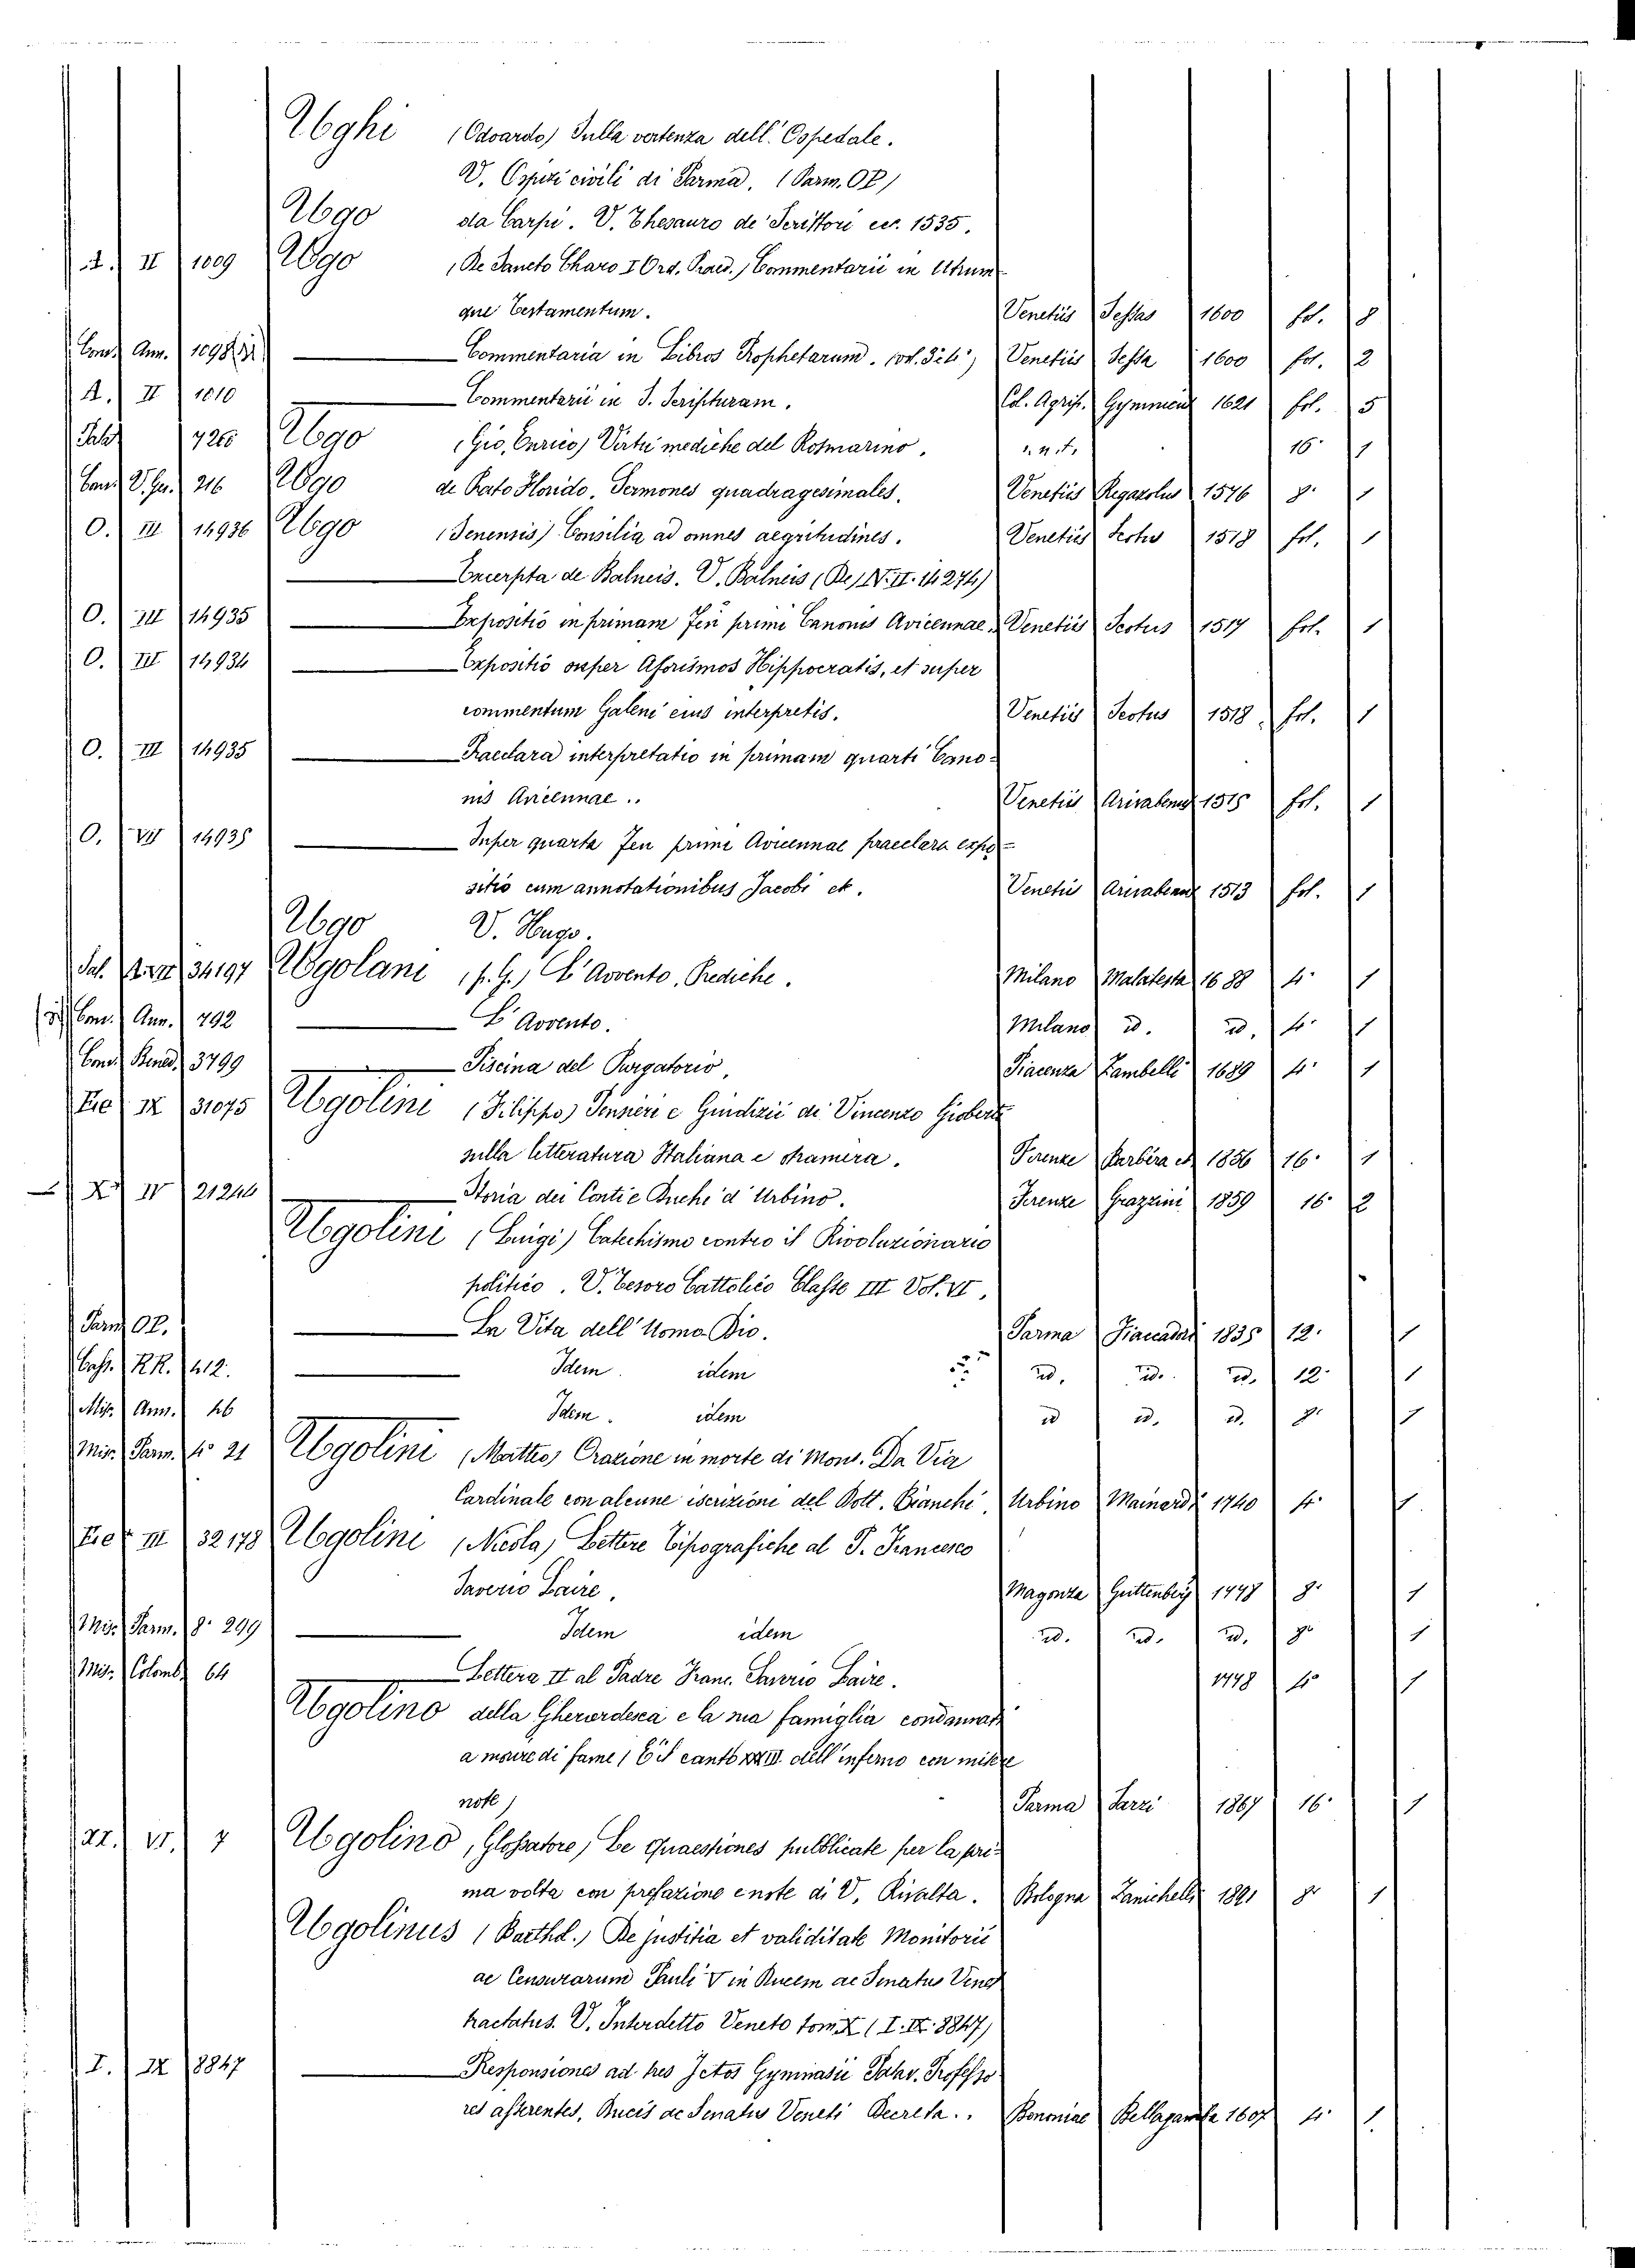 Ughi (Odoardo) Sulla vertenza dell' Ospedale.
V. Ospizi civili di Parma. (Parm. OP)
Ugo da Carpi. V. Thesauro de' Scrittori ecc. 1535.
A. II 1009 Ugo (De Sancto Charo I Ord. Praed.) Commentarii in Utrum
que Testamentum. Venetiis Sessas 1600 fol. 8
Conv. Ann. 1098 Commentaria in Libros Prophetarum. Venetiis Sessa 1600 fol. 2
A. II 1010 Commentarii in S. Scripturam. Col. Agrip. Gymnicus 1621 fol. 5
7266 Ugo (Gio. Enrico) Virtù mediche del Rosmarino. s. n. t. 16° 1
216 Ugo de Prato Florido. Sermones quadragesimales. Venetiis Regazolus 1576 8° 1
O. III 14936 Ugo (Senensis) Consilia ad omnes aegritudines. Venetiis Scotus 1518 fol. 1
Excerpta de Balneis. V. Balneis (De) N. II. 14274)
O. III 14935 Expositio in primam Fen primi Canonis Avicennae. Venetiis Scotus 1517 fol. 1
O. III 14934 Expositio super Aforismos Hippocratis, et super
commentum Galeni eius interpretis. Venetiis Scotus 1518 fol. 1
O. III 14935 Praeclara interpretatio in primam quarti Cano-
nis Avicennae.. Venetiis Arivabenus 1515 fol. 1
O. VII 14935 Super quarta Fen primi Avicennae praeclara expo=
sitio cum annotationibus Jacobi etc. Venetiis Arivabenus 1513 fol. 1
Ugo V. Hugo.
Sal. 34197 Ugolani (P. G.) L' Avvento. Prediche. Milano Malatesta 1688 4° 1
Conv. Ann. 792 L' Avvento. Milano id. id. 4° 1
Conv. Bened. 3799 Piscina del Purgatorio. Piacenza Zambelli 1689 4° 1
IX 31075 Ugolini (Filippo) Pensieri e Giudizii di Vincenzo Gioberti
sulla letteratura Italiana e straniera. Firenze Barbèra etc. 1856 16° 1
X IV 21244 Storia dei Conti e Duchi d' Urbino. Firenze Grazzini 1859 16° 2
Ugolini (Luigi) Catechismo contro il Rivoluzionario
politico. V. Tesoro Cattolico Classe III Vol. VI.
Parm. OP. La Vita dell' Uomo Dio. Parma Fiaccadori 1835 12° 1
RR. 412. Idem idem id. id. id. 12° 1
Misc. Ann. 46 Idem. idem id id. id. 8° 1
Misc. Parm. 4° 21 Ugolini (Matteo) Orazione in morte di Mons. Da Via
Cardinale con alcune iscrizioni del Dott. Bianchi. Urbino Mainardi 1740 4° 1
III 32178 Ugolini (Nicola) Lettere Tipografiche al P. Francesco
Saverio Laire. Magonza Guttenberg 1778 8° 1
Misc. Parm. 8° 299 Idem idem id. id. id. 8° 1
Misc. Colomb. 64 Lettera II al Padre Franc. Saverio Laire. 1778 4° 1
Ugolino della Gherardesca e la sua famiglia condannati
a morire di fame (È il canto XXXIII dell' inferno con
note) Parma 1867 16° 1
VI. 7 Ugolino, (Glossatore) Le Quaestiones pubblicate per la pri-
ma volta con prefazione e note di V. Rivalta. Bologna Zanichelli 1891 8° 1
Ugolinus (Barthol.) De justitia et validitate Monitorii
ac Censurarum Pauli V in Ducem ac Senatus Venet
tractatus. V. Interdetto Veneto tom. X (I. IX. 8847)
I. IX 8847 Responsiones ad tres Jctos Gymnasii Patav. Professo
res asserentes, Ducis ac Senatus Veneti Decreta.. Bononiae Bellagamba 1607 4° 1